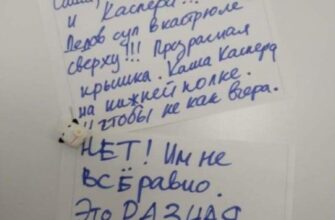 Саша,
и Каспери!!!
Дедов суп в кастрюле
сверху!!! Прозрачная
крышка. Каша Каспера
на нижней полке.
И чтобы не как вчера.
НЕТ! Им не
ВСЁ равно.
Это РАЗНАЯ